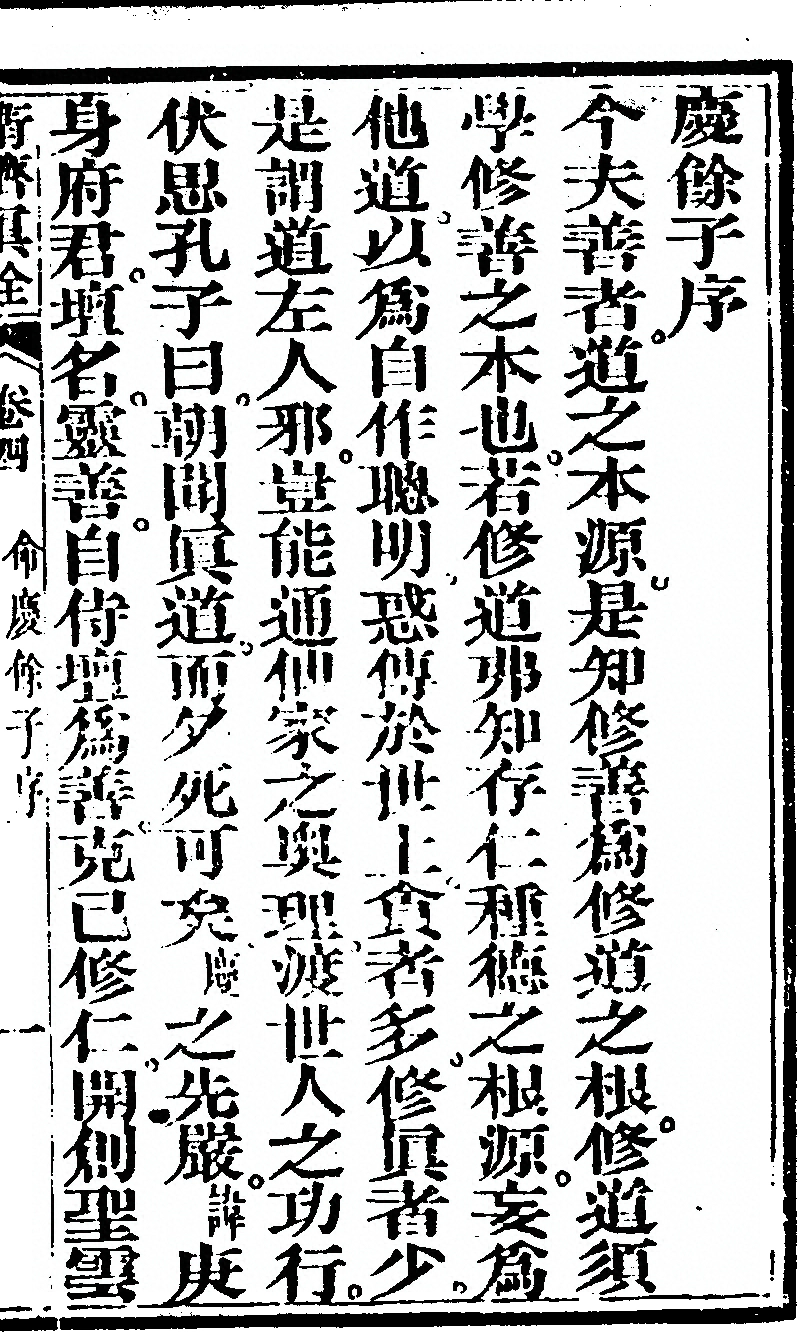 慶餘子序
今夫善者道之本源是知修善爲修道之根修道須
學修善之本也若修道弗知存仁種德之根源妄爲
他道以爲自作聰明惑傳於世上食者多修眞者少
是謂道左人邪豈能通仙家之奥理渡世人之功行
伏思孔子曰朝聞眞道而夕死可矣慶之先嚴諱庚
身府君壇名靈善自侍壇爲善克己修仁開創聖雲
卷四
命慶餘子序
一